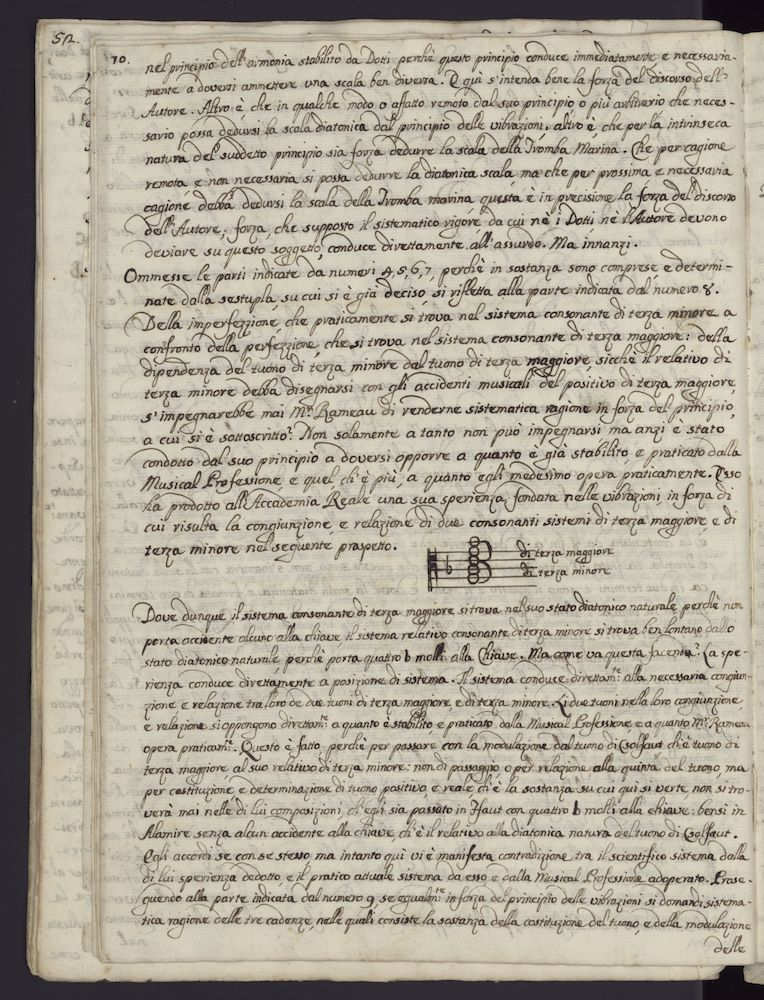 52.
70.
nel principio dell'armonia stabilito da Dotti perchè questo principio conduce immediatamente e necessaria-
mente a doversi ammettere una scala ben diversa. E quì s'intenda bene la forza del discorso dell'
Autore. Altro è che in qualche modo o affatto remoto dal suo principio o più arbitrario che neces-
sario possa dedursi la scala diatonica dal principio delle vibrazioni, altro è che per la intrinseca
natura del suddetto principio sia forza dedurre la scala della Tromba Marina. Che per cagione
remota, e non necessaria si possa dedurre la diatonica scala, ma che per prossima e necessaria
cagione debba dedursi la scala della Tromba marina questa è in precisione la forza del discorso
dell'Autore, forza, che supposto il sistematico rigore da cui nè i Dotti nè l'Autore devono
deviare su questo soggetto, conduce direttamente all'assurdo. Ma innanzi.
Ommesse le parti indicate da numeri 4, 5, 6, 7, perchè in sostanza sono comprese e determi-
nate dalla sestupla, su cui si è già deciso, si rifletta alla parte indicata dal numero 8.
Della imperfezzione, che praticamente si trova nel sistema consonante di terza minore a
confronto della perfezzione, che si trova nel sistema consonante di terza maggiore: della
dipendenza del tuono di terza minore dal tuono di terza maggiore sicchè il relativo di
terza minore debba disegnarsi con gli accidenti musicali del positivo di terza maggiore,
s'impegnarebbe mai Mr. Rameau di renderne sistematica ragione in forza del principio,
a cui si è sottoscritto? Non solamente a tanto non può impegnarsi ma anzi è stato
condotto dal suo principio a doversi opporre a quanto è già stabilito e praticato dalla
Musical Professione, e quel ch'è più, a quanto egli medesimo opera praticamente. Esso
ha prodotto all'Accademia Reale una sua sperienza fondata nelle vibrazioni in forza di
cui risulta la congiunzione, e relazione di due consonanti sistemi di terza maggiore, e di
terza minore nel seguente prospetto.
di terza maggiore
di terza minore
Dove dunque il sistema consonante di terza maggiore si trova nel suo stato diatonico naturale, perchè non
porta accidente alcuno alla chiave, il sistema relativo consonante di terza minore si trova ben lontano dallo
stato diatonico naturale, perchè porta quattro b molli alla Chiave. Ma come va questa facenda? La spe-
rienza conduce direttamente a posizione di sistema. Il sistema conduce direttam.te alla necessaria congiun-
zione e relazione tra loro de due tuoni di terza maggiore e di terza minore. Li due tuoni nella loro congiunzione,
e relazione si oppongono direttam.te a quanto è stabilito e praticato dalla Musical Professione e a quanto Mr. Rameau
opera praticam.te. Questo è fatto, perchè per passare con la modulazione dal tuono di Csolfaut ch'è tuono di
terza maggiore al suo relativo di terza minore: non di passaggio, o per relazione alla quinta del tuono, ma
per costituzione, e determinazione di tuono positivo, e reale, ch'è la sostanza su cui qui si verte, non si tro-
verà mai nelle di lui composizioni, ch'egli sia passato in Ffaut con quattro b molli alla chiave: bensì in
Alamire senza alcun accidente alla chiave, ch'è il relativo alla diatonica natura del tuono di Csolfaut.
Egli accordi se con se stesso, ma intanto quì vi è manifesta contradizione tra il scientifico sistema dalla
di lui sperienza dedotto, e il pratico attuale sistema da esso e dalla Musical Professione adoperato. Prose-
guendo alla parte indicata dal numero 9, se egualm.te in forza del principio delle vibrazioni si domandi sistema-
tica ragione delle tre cadenze, nelle quali consiste la sostanza della costituzione del tuono, e della modulazione
delle